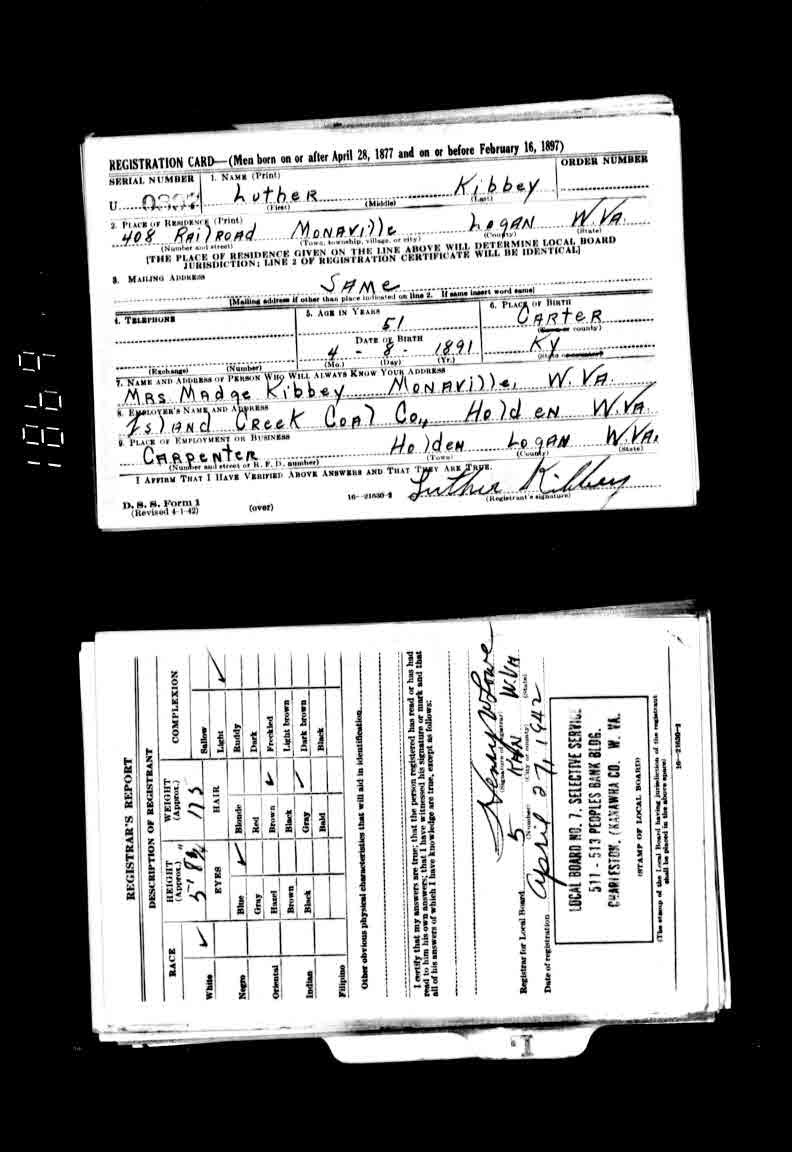 REGISTRATION CARD—(Men born on or after April 28, 1877 and on or before February 16, 1897)
SERIAL NUMBER 1. NAME (Print) ORDER NUMBER
U Luther Kibbey
(First) (Middle) (Last)
2. PLACE OF RESIDENCE (Print)
408 RAILROAD MONAVILLE LOGAN W.VA.
(Number and street) (Town, township, village, or city) (County) (State)
[THE PLACE OF RESIDENCE GIVEN ON THE LINE ABOVE WILL DETERMINE LOCAL BOARD
JURISDICTION; LINE 2 OF REGISTRATION CERTIFICATE WILL BE IDENTICAL]
3. MAILING ADDRESS
SAMe
[Mailing address if other than place indicated on line 2. If same insert word same]
4. TELEPHONE 5. AGE IN YEARS 6. PLACE OF BIRTH
51 CARTeR
DATE OF BIRTH (Town or county)
4 - 8 - 1891 KY
(Exchange) (Number) (Mo.) (Day) (Yr.) (State or country)
7. NAME AND ADDRESS OF PERSON WHO WILL ALWAYS KNOW YOUR ADDRESS
MRS Madge Kibbey MONAVille, W. VA.
8. EMPLOYER'S NAME AND ADDRESS
Island Creek Coal Co., Holden W.VA.
9. PLACE OF EMPLOYMENT OR BUSINESS
CARPenteR Holden LOGAN W.VA.
(Number and street or R. F. D. number) (Town) (County) (State)
I AFFIRM THAT I HAVE VERIFIED ABOVE ANSWERS AND THAT THEY ARE TRUE.
D. S. S. Form 1
(Revised 4-1-42) (over) 16—21630-2 Luther Kibbey
(Registrant's signature)
REGISTRAR'S REPORT
DESCRIPTION OF REGISTRANT
RACE HEIGHT (Approx.) WEIGHT (Approx.) COMPLEXION
5' 8¾" 175
White EYES HAIR Sallow
Light
Negro Blue Blonde Ruddy
Gray Red Dark
Oriental Hazel Brown Freckled
Brown Black Light brown
Indian Black Gray Dark brown
Bald Black
Filipino
Other obvious physical characteristics that will aid in identification
I certify that my answers are true; that the person registered has read or has had
read to him his own answers; that I have witnessed his signature or mark and that
all of his answers of which I have knowledge are true, except as follows:
Henry W Lowe
(Signature of registrar)
Registrar for Local Board 5 KAN W.VA
(Number) (City or county) (State)
Date of registration April 27, 1942
LOCAL BOARD NO. 7, SELECTIVE SERVICE
511 - 513 PEOPLES BANK BLDG.
CHARLESTON, (KANAWHA CO. W. VA.
(STAMP OF LOCAL BOARD)
(The stamp of the Local Board having jurisdiction of the registrant
shall be placed in the above space)
16—21630-2